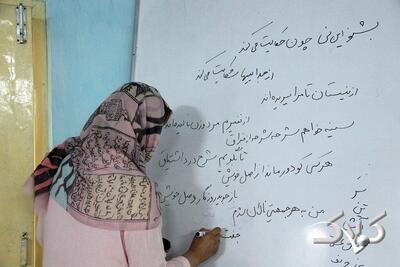 بشنو این نی چون حکایت می‌کند
از جداییها شکایت می‌کند
از نیستان تا مرا ببریده‌اند
از نفیرم مرد و زن نالیده‌اند
سینه خواهم شرحه شرحه از فراق
تا بگویم شرح درد اشتیاق
هر کسی کو دور ماند از اصل خویش
باز جوید روزگار وصل خویش
من به هر جمعیتی نالان شدم
جفت